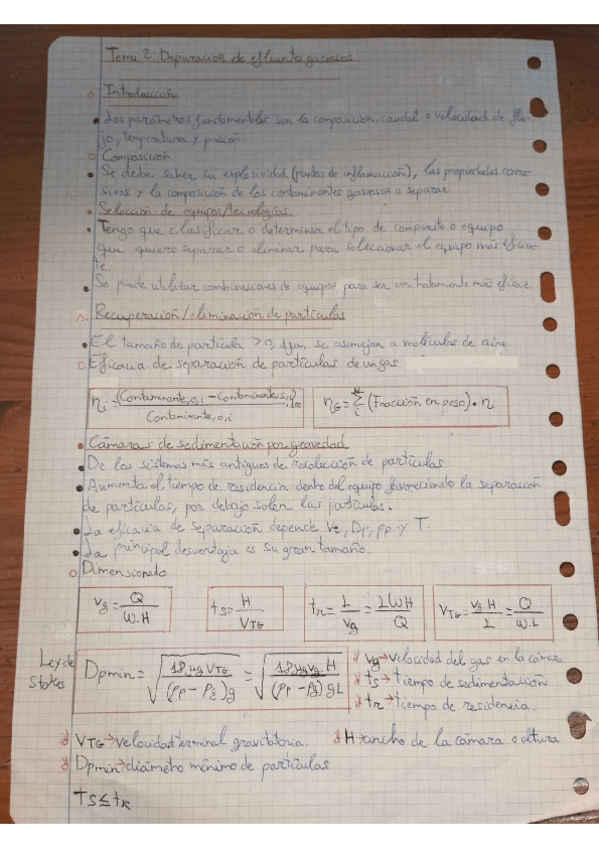 Tema 2: Depuración de efluento gaseosos
Introducción
Los parámetros fundamentales son la composición, caudal o velocidad de flu-
jo, temperatura y presión.
Composición
Se debe saber, su explosividad (puntos de inflamación), las propiedades corro-
sivas y la composición de los contaminantes gaseosos a separar.
Selección de equipos/tecnologías
Tengo que clasificar o determinar el tipo de compuesto o equipo
que quiero separar o eliminar para seleccionar el equipo más eficien-
te.
Se puede utilizar combinaciones de equipos para ser un tratamiento más eficaz.
Recuperación/eliminación de partículas
El tamaño de partícula > 0,1μm se asimejan a moléculas de aire.
Eficacia de separación de partículas de un gas
ηi = (Contaminante,o,i − Contaminante,s,i) / Contaminante,o,i
ηG = Σ (Fracción en peso) · ηi
Cámaras de sedimentación por gravedad
De los sistemas más antiguos de recolección de partículas.
Aumenta el tiempo de residencia dentro del equipo favoreciendo la separación
de partículas, por debajo salen las partículas.
La eficacia de separación depende Vt, Dp, ρp y T.
La principal desventaja es su gran tamaño.
Dimensionado
vg = Q / W.H
ts = H / VTG
tR = L / vg = LWH / Q
VTG = vg.H / L = Q / W.L
Ley de
Stokes
Dpmin = √(18μg VTG / (ρp − ρg)g) = √(18μg vg.H / (ρp − ρg)gL)
vg → velocidad del gas en la cámara
ts → tiempo de sedimentación
tR → tiempo de residencia.
VTG → velocidad terminal gravitatoria. H → ancho de la cámara o altura
Dpmin → diámetro mínimo de partículas
ts ≤ tR